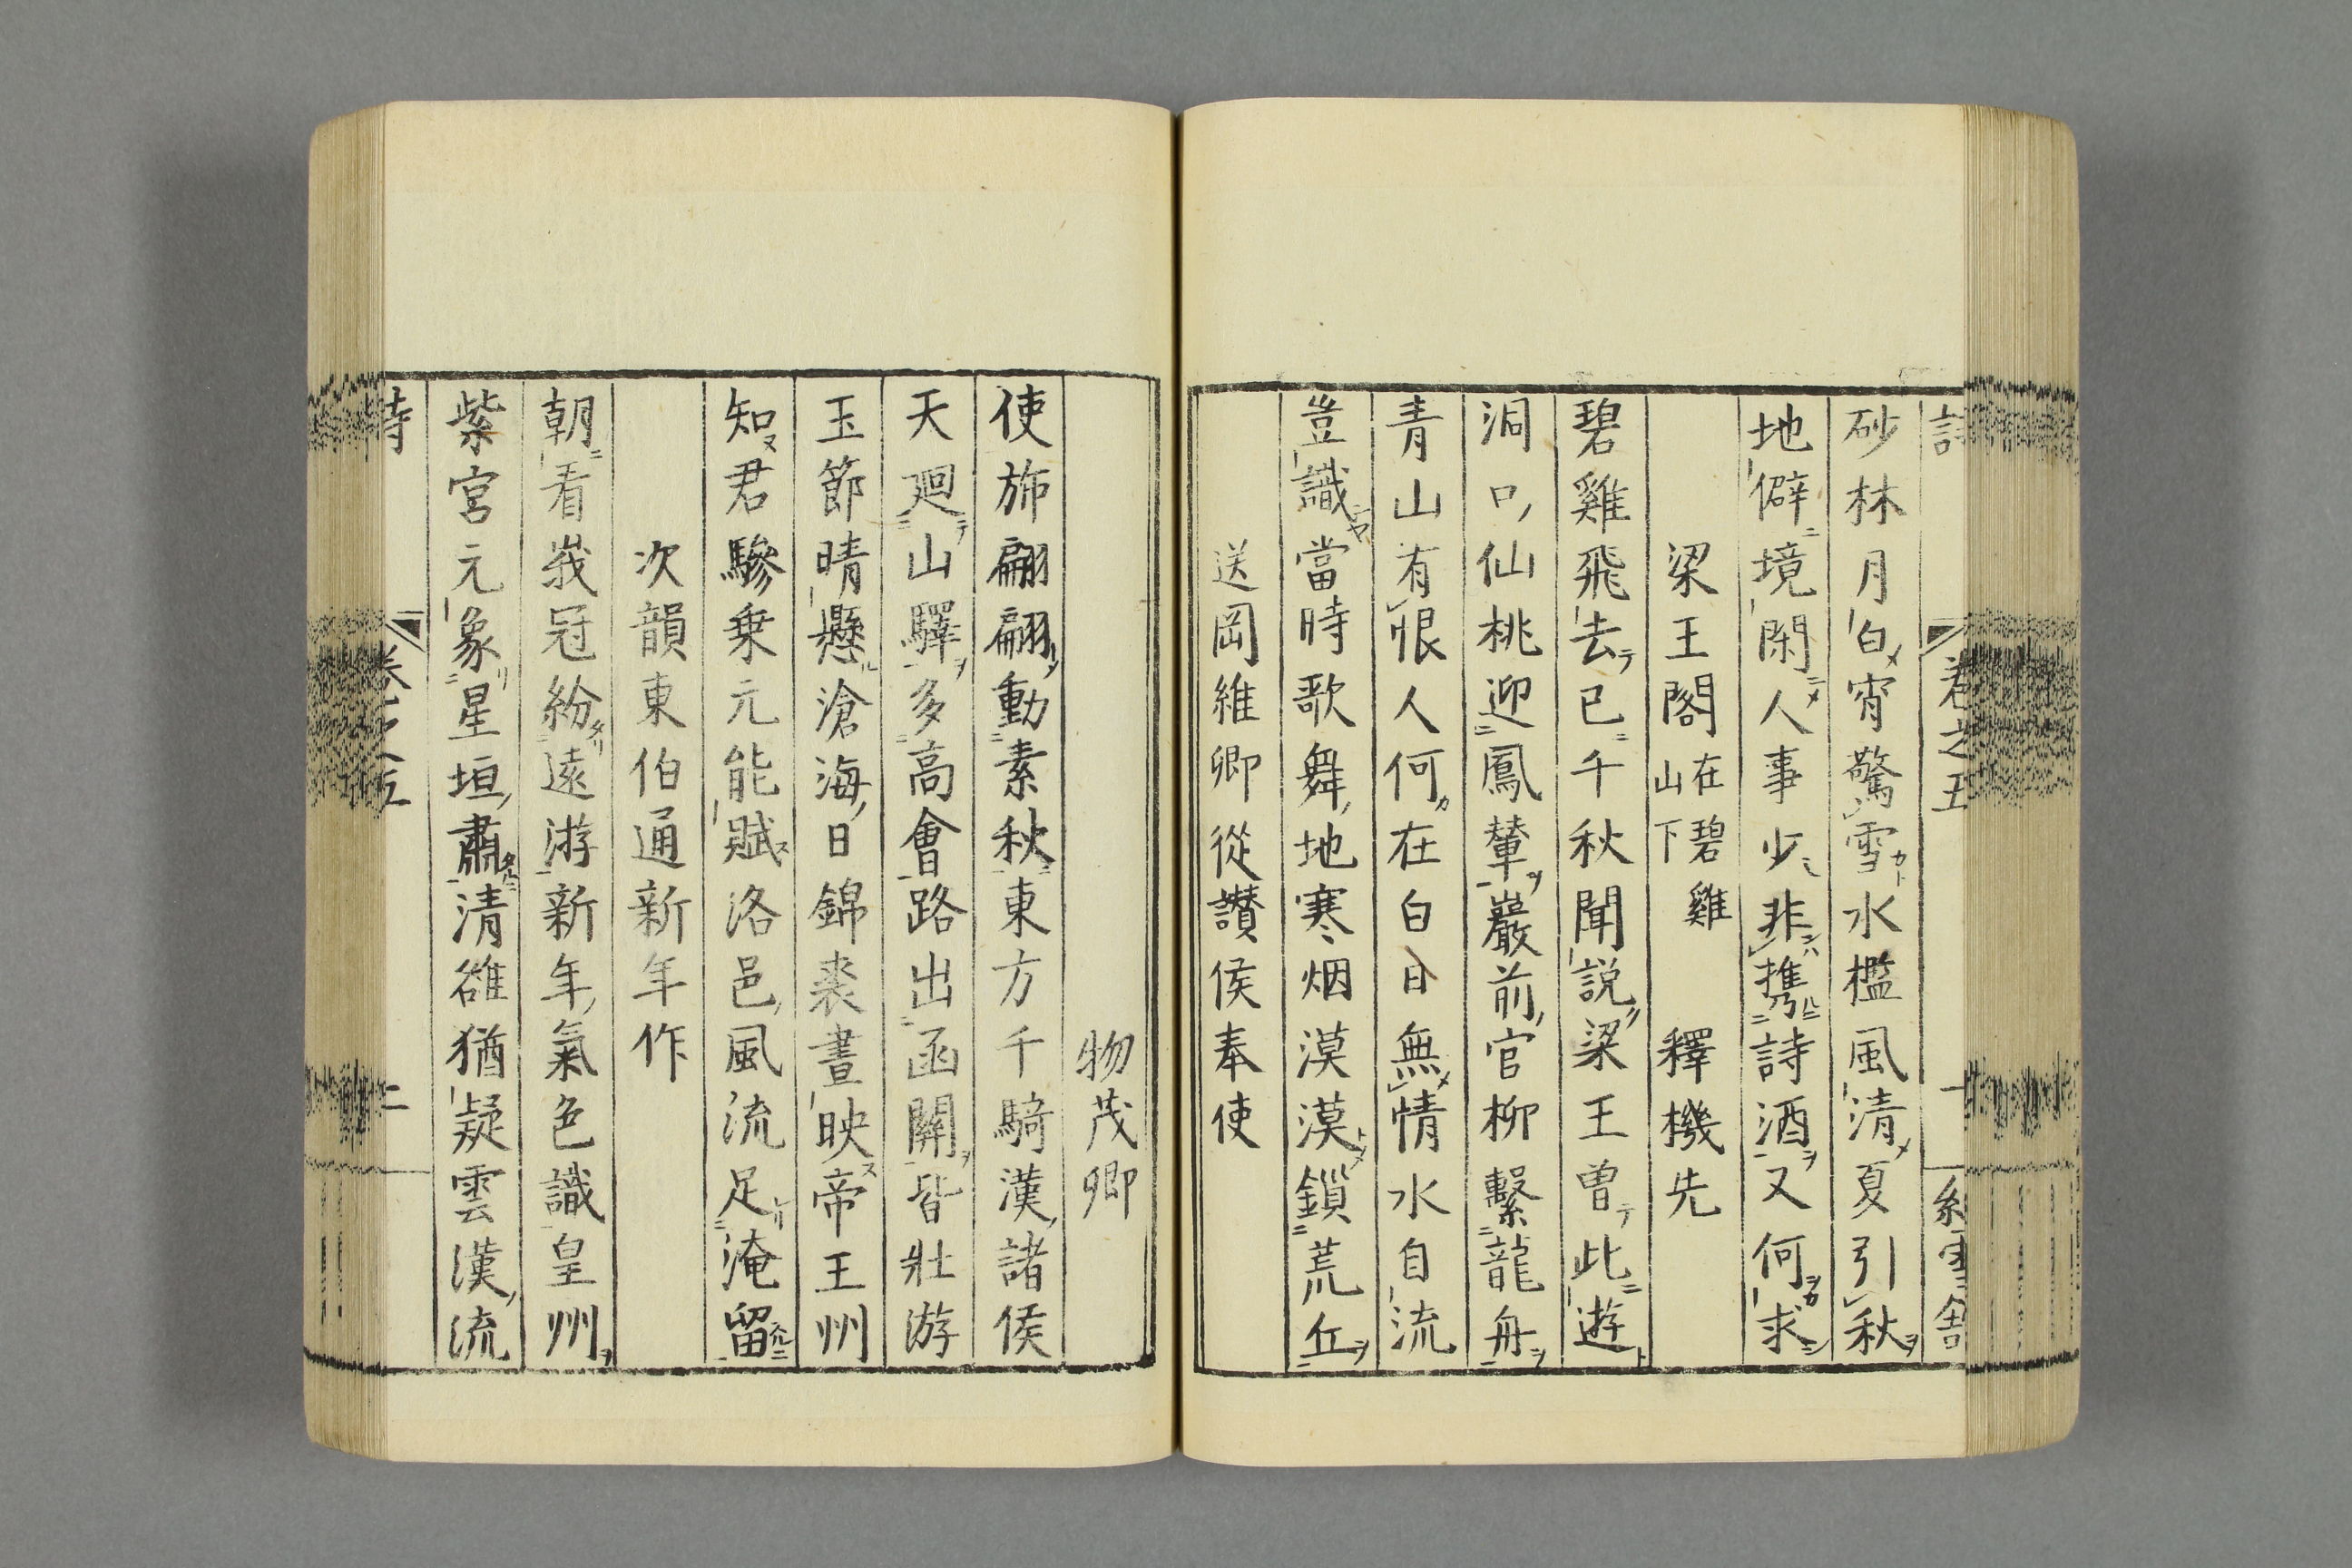 砂林月白宵驚雪水檻風清夏引秋
地僻境閑人事少非携詩酒又何求
梁王閣在碧雞山下 釋機先
碧雞飛去已千秋聞說梁王曽此遊
洞口仙桃迎鳳輦巖前官柳繫龍舟
青山有恨人何在白日無情水自流
豈識當時歌舞地寒烟漠漠鎖荒丘
送岡維卿從讃侯奉使
物茂卿
使旆翩翩動素秋東方千騎漢諸侯
天廻山驛多高會路出函關皆壯游
玉節晴懸滄海日錦裘晝映帝王州
知君驂乗元能賦洛邑風流足淹留
次韻東伯通新年作
朝看峩冠紛遠游新年氣色識皇州
紫宮元象星垣肅清雒猶疑雲漢流